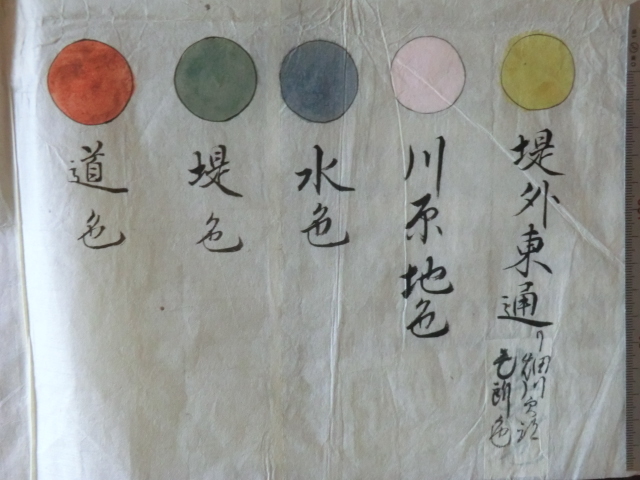 堤外東通り
細川
色
川原地色
水色
堤色
道色